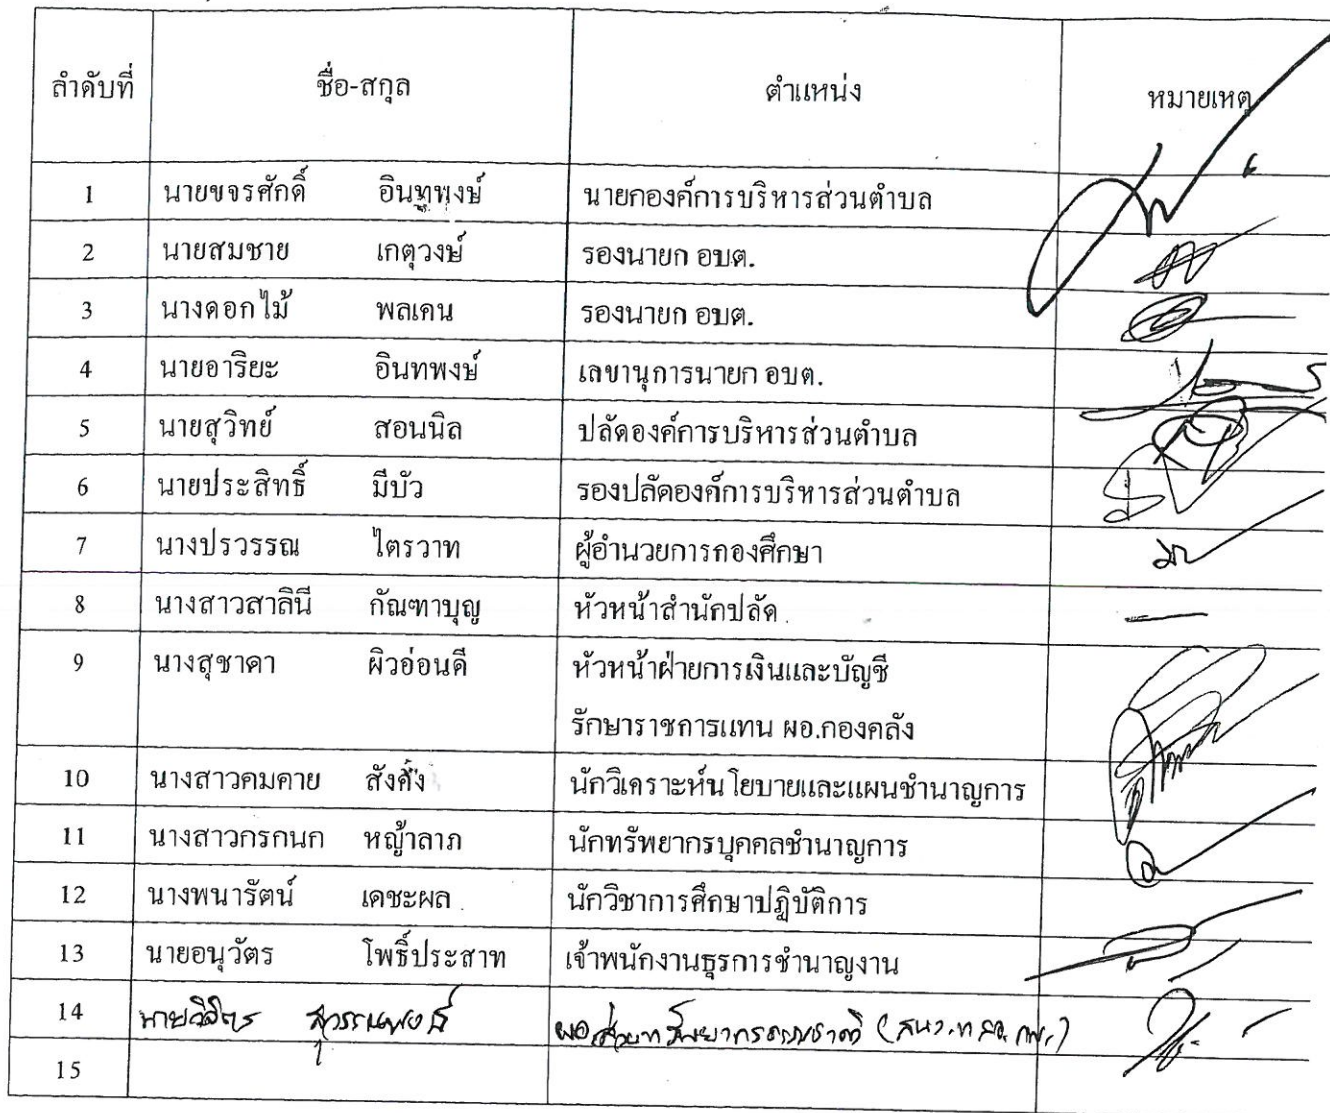 ลำดับที่ ชื่อ-สกุล ตำแหน่ง หมายเหตุ
1 นายขจรศักดิ์ อินทพงษ์ นายกองค์การบริหารส่วนตำบล
2 นายสมชาย เกตุวงษ์ รองนายก อบต.
3 นางดอกไม้ พลเคน รองนายก อบต.
4 นายอาริยะ อินทพงษ์ เลขานุการนายก อบต.
5 นายสุวิทย์ สอนนิล ปลัดองค์การบริหารส่วนตำบล
6 นายประสิทธิ์ มีบัว รองปลัดองค์การบริหารส่วนตำบล
7 นางปรวรรณ ไตรวาท ผู้อำนวยการกองศึกษา
8 นางสาวสาลินี กัณฑาบุญ หัวหน้าสำนักปลัด
9 นางสุชาดา ผิวอ่อนดี หัวหน้าฝ่ายการเงินและบัญชี
รักษาราชการแทน ผอ.กองคลัง
10 นางสาวคมคาย สังคั่ง นักวิเคราะห์นโยบายและแผนชำนาญการ
11 นางสาวกรกนก หญ้าลาภ นักทรัพยากรบุคคลชำนาญการ
12 นางพนารัตน์ เดชะผล นักวิชาการศึกษาปฏิบัติการ
13 นายอนุวัตร โพธิ์ประสาท เจ้าพนักงานธุรการชำนาญงาน
14 ผอ.ส่วนทรัพยากรธรรมชาติ
15